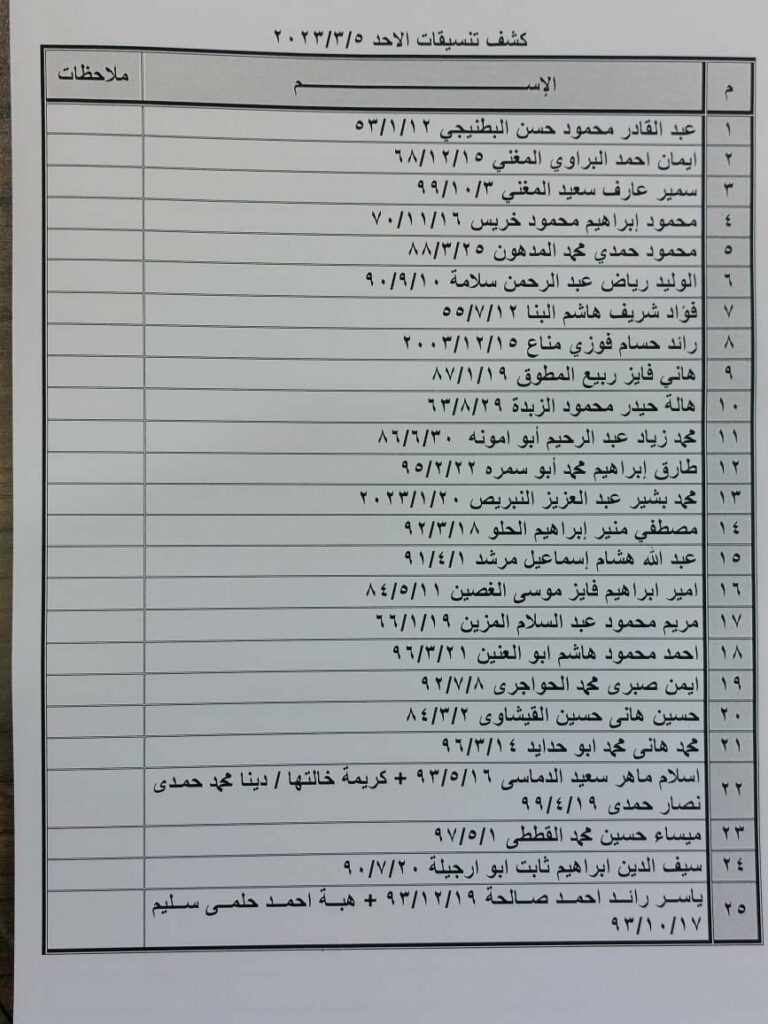 كشف تنسيقات الاحد ٢٠٢٣/٣/٥
م الإســـــــــــــــــــــم ملاحظات
١ عبد القادر محمود حسن البطنيجي ٥٣/١/١٢
٢ ايمان احمد البراوي المغني ٦٨/١٢/١٥
٣ سمير عارف سعيد المغني ٩٩/١٠/٣
٤ محمود إبراهيم محمود خريس ٧٠/١١/١٦
٥ محمود حمدي محمد المدهون ٨٨/٣/٢٥
٦ الوليد رياض عبد الرحمن سلامة ٩٠/٩/١٠
٧ فؤاد شريف هاشم البنا ٥٥/٧/١٢
٨ رائد حسام فوزي مناع ٢٠٠٣/١٢/١٥
٩ هاني فايز ربيع المطوق ٨٧/١/١٩
١٠ هالة حيدر محمود الزبدة ٦٣/٨/٢٩
١١ محمد زياد عبد الرحيم أبو امونه ٨٦/٦/٣٠
١٢ طارق إبراهيم محمد أبو سمره ٩٥/٢/٢٢
١٣ محمد بشير عبد العزيز النبريص ٢٠٢٣/١/٢٠
١٤ مصطفي منير إبراهيم الحلو ٩٢/٣/١٨
١٥ عبد الله هشام إسماعيل مرشد ٩١/٤/١
١٦ امير ابراهيم فايز موسى الغصين ٨٤/٥/١١
١٧ مريم محمود عبد السلام المزين ٦٦/١/١٩
١٨ احمد محمود هاشم ابو العنين ٩٦/٣/٢١
١٩ ايمن صبرى محمد الحواجرى ٩٢/٧/٨
٢٠ حسين هانى حسين القيشاوى ٨٤/٣/٢
٢١ محمد هانى محمد ابو حدايد ٩٦/٣/١٤
٢٢ اسلام ماهر سعيد الدماسى ٩٣/٥/١٦ + كريمة خالتها / دينا محمد حمدى
نصار حمدى ٩٩/٤/١٩
٢٣ ميساء حسين محمد القططى ٩٧/٥/١
٢٤ سيف الدين ابراهيم ثابت ابو ارجيلة ٩٠/٧/٢٠
٢٥ ياسر رائد احمد صالحة ٩٣/١٢/١٩ + هبة احمد حلمى سليم
٩٣/١٠/١٧